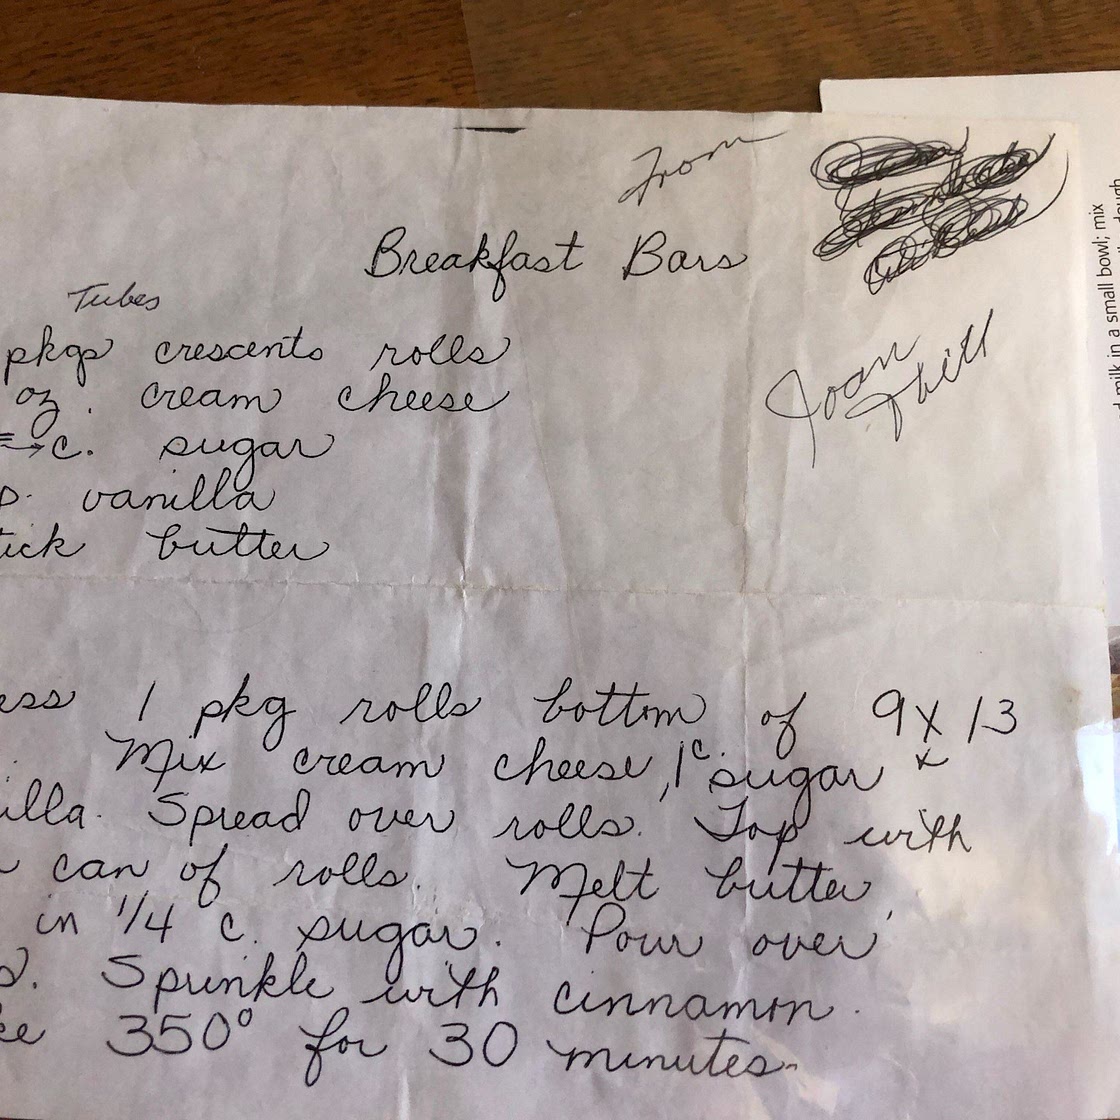 From
Breakfast Bars
Tubes
pkgs crescents rolls
oz. cream cheese
c. sugar
p. vanilla
tick butter
Joan
ess 1 pkg rolls bottom of 9 x 13
Mix cream cheese, 1 c. sugar x
illa. Spread over rolls. Top with
can of rolls. Melt butter,
in 1/4 c. sugar. Pour over
s. Sprinkle with cinnamon.
ke 350° for 30 minutes.
milk in a small bowl; mix
dough